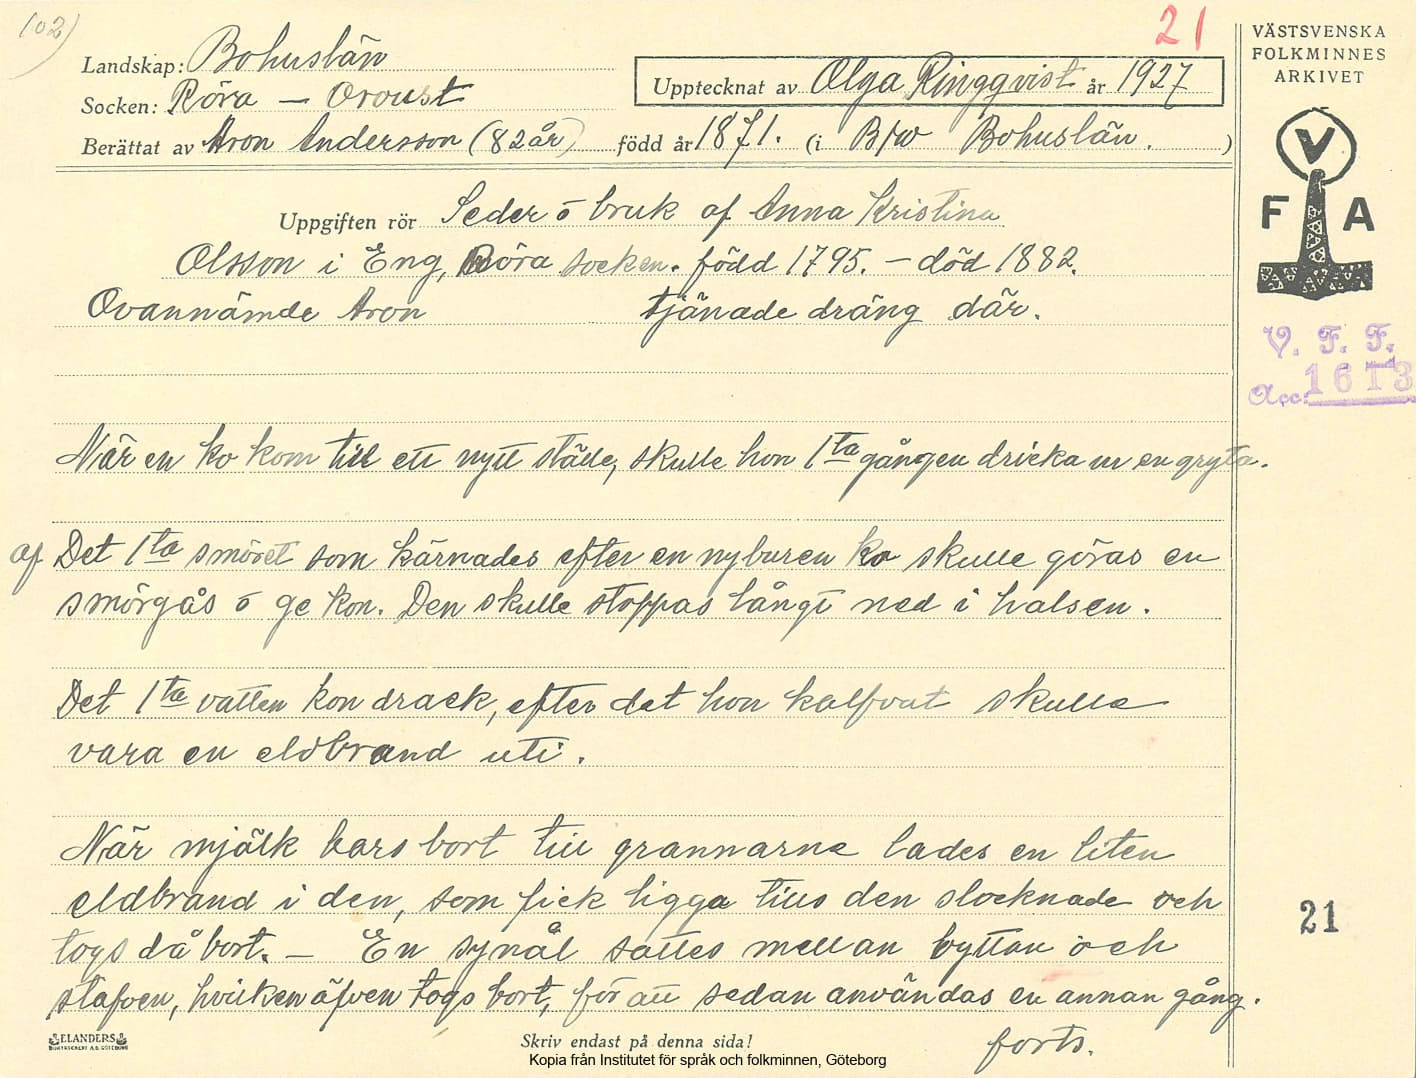 (102)
21
Landskap: Bohuslän
Socken: Röra — Oroust
Berättat av Aron Andersson (82 år)
Upptecknat av Olga Ringqvist år 1927
född år 1871. (i Bhw Bohuslän.)
Uppgiften rör Seder o bruk af Anna Kristina
Olsson i Eng, Röra socken. född 1795. – död 1882.
Ovannämde Aron tjänade dräng där.
När en ko kom till ett nytt ställe, skulle hon 1ta gången dricka ur en gryta.
af Det 1ta smöret som kärnades efter en nyburen ko skulle göras en
smörgås o ge kon. Den skulle stoppas långt ned i halsen.
Det 1ta vatten kon drack, efter det hon kalfvat skulle
vara en eldbrand uti.
När mjölk bars bort till grannarne lades en liten
eldbrand i den, som fick ligga tills den slocknade och
togs då bort. – En synål sattes mellan byttan och
stafven, hvilken äfven togs bort, för att sedan användas en annan gång.
forts.
VÄSTSVENSKA
FOLKMINNES
ARKIVET
V
F A
V. F. F.
Acc: 1613
21
ELANDERS
BOKTRYCKERI A.B. GÖTEBORG
Skriv endast på denna sida!
Kopia från Institutet för språk och folkminnen, Göteborg